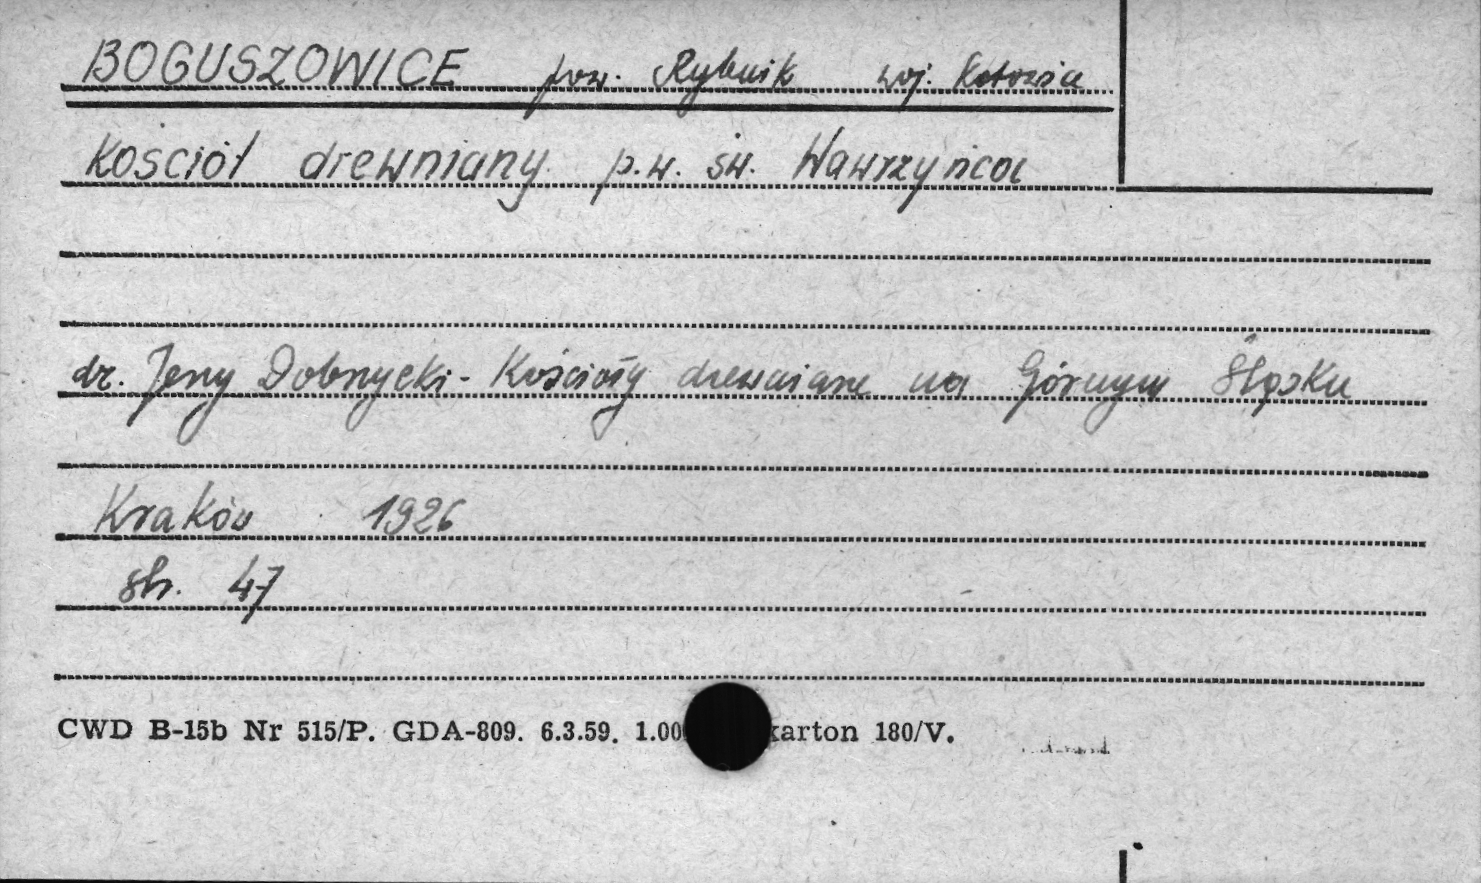 BOGUSZOWICE pow. Rybnik woj. Katowice
Kościół drewniany p.w. św. Wawrzyńca
dr. Jerzy Dobrzycki - Kościoły drewniane na Górnym Śląsku
Kraków 1926
str. 47
CWD B-15b Nr 515/P. GDA-809. 6.3.59. 1.00 karton 180/V.